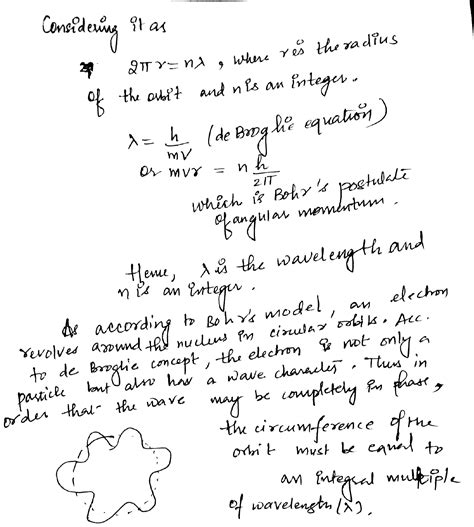 Considering it as
2πr = nλ, where r is the radius
of the orbit and n is an integer.
λ = h/mv (de Broglie equation)
or mvr = n h/2π
which is Bohr's postulate
of angular momentum.
Hene, λ is the wavelength and
n is an integer.
As according to Bohr's model, an electron
revolves around the nucleus in circular orbits. Acc.
to de Broglie concept, the electron is not only a
particle but also has a wave character. Thus in
order that the wave may be completely in phase,
the circumference of the
orbit must be equal to
an integral multiple
of wavelength (λ).